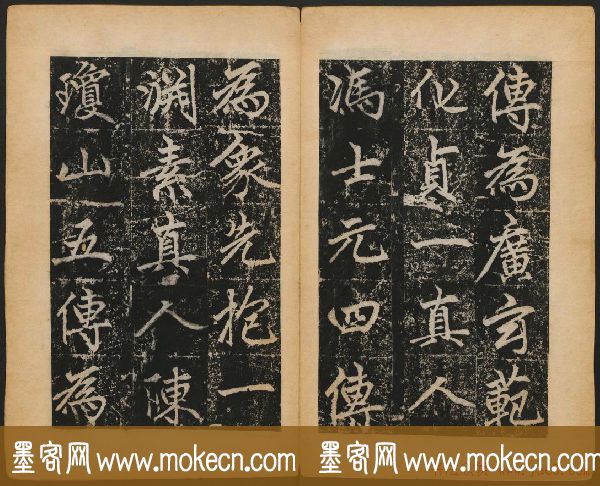 傳為廣玄範
化貞一真人
馮士元四傳
為象先抱一
淵素真人陳
瓊山五傳為
墨客网 www.mokecn.com
墨客网 www.mokecn.com